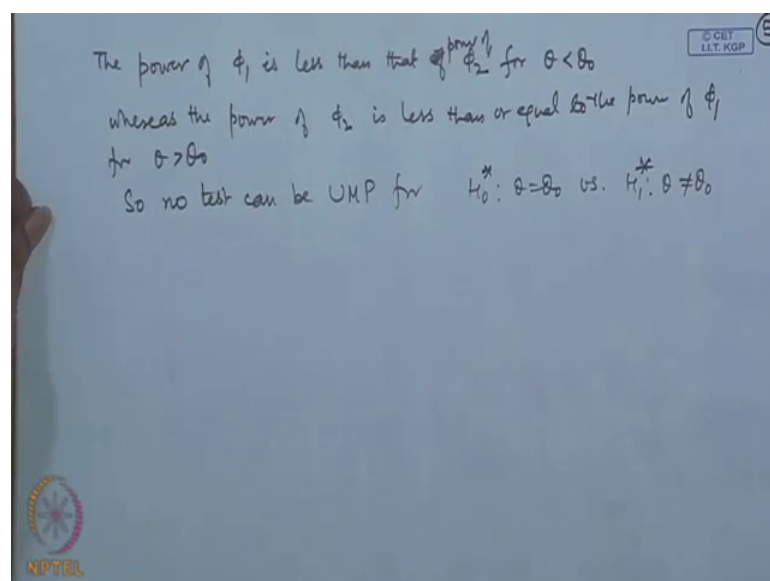 © CET
I.I.T. KGP
5
The power of ϕ₁ is less than that power of ϕ₂ for θ < θ₀
whereas the power of ϕ₂ is less than or equal to the power of ϕ₁
for θ > θ₀
So no test can be UMP for H₀*: θ = θ₀ vs. H₁*: θ ≠ θ₀
NPTEL